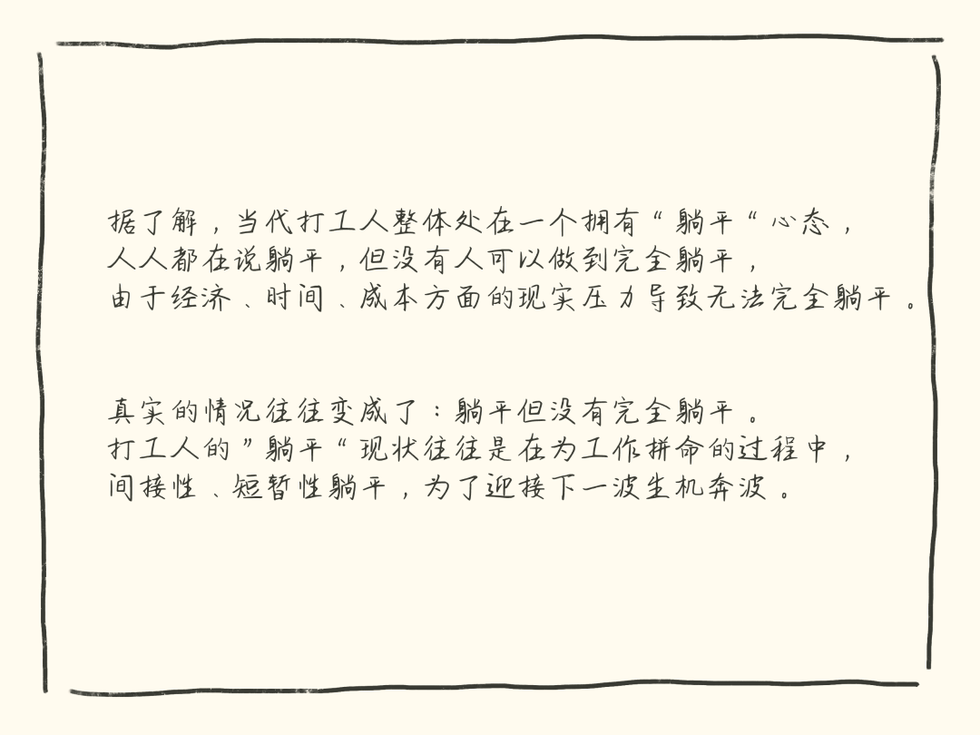 据了解，当代打工人整体处在一个拥有“躺平“心态，
人人都在说躺平，但没有人可以做到完全躺平，
由于经济、时间、成本方面的现实压力导致无法完全躺平。
真实的情况往往变成了：躺平但没有完全躺平。
打工人的”躺平“现状往往是在为工作拼命的过程中，
间接性、短暂性躺平，为了迎接下一波生机奔波。